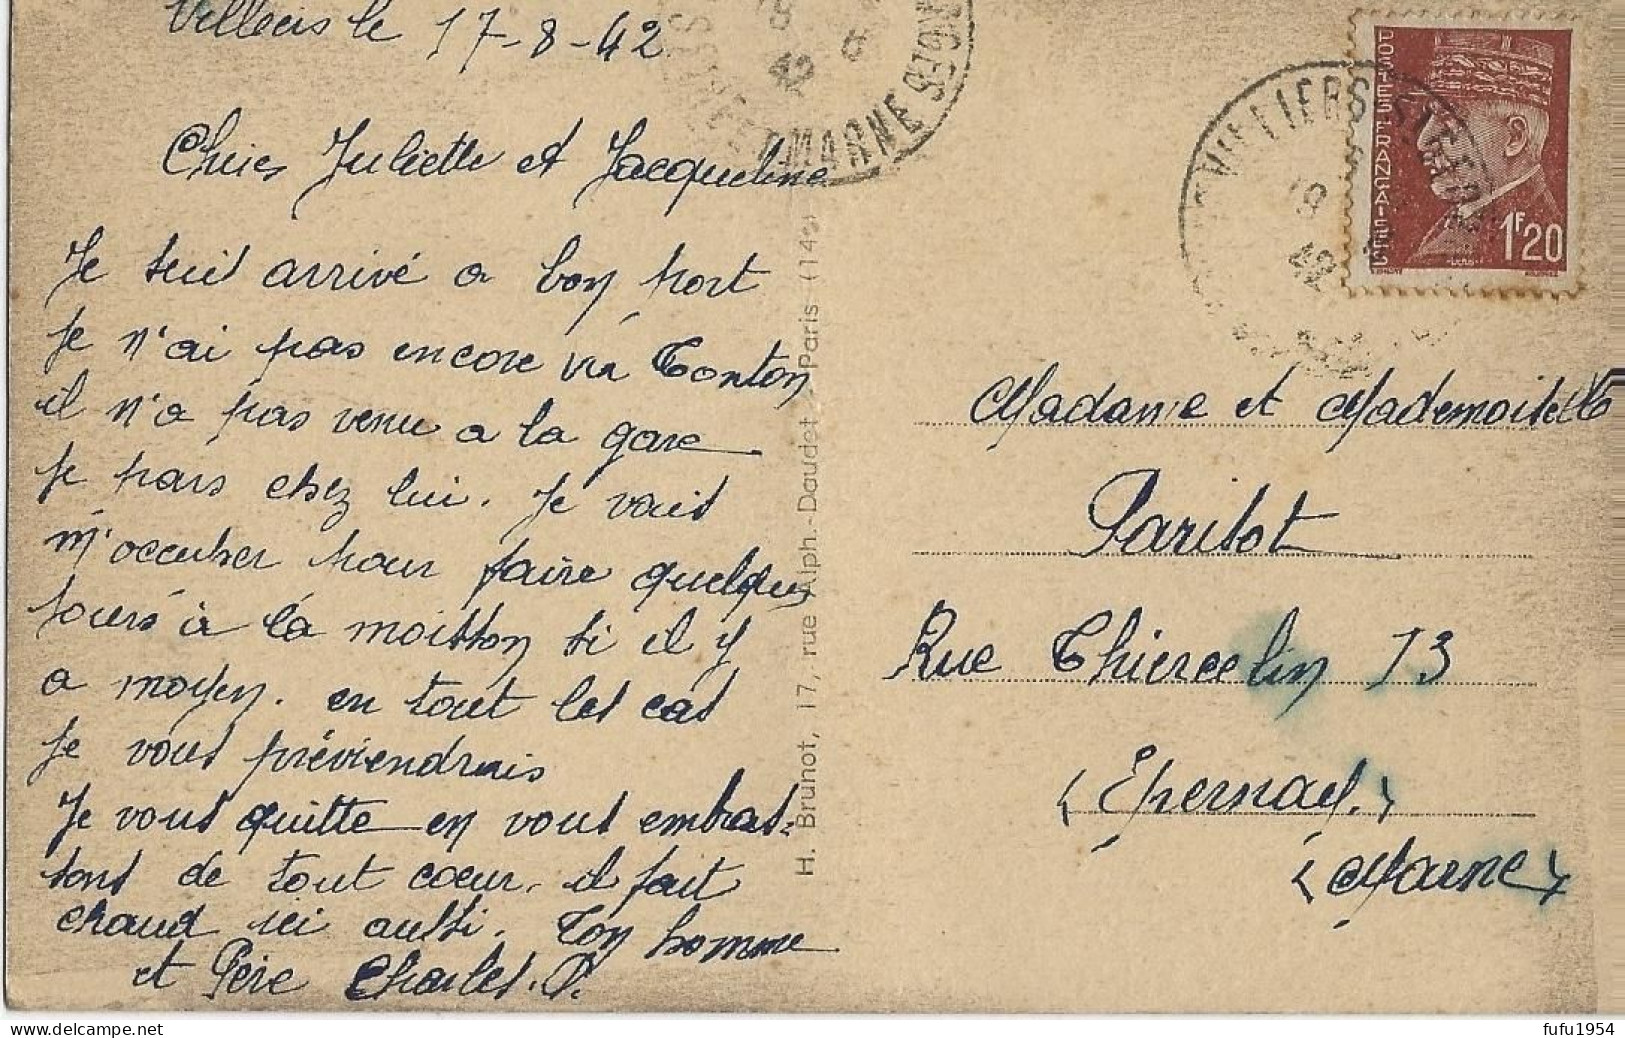 Villiers le 17-8-42
Chères Juliette et Jacqueline
Je suis arrivé a bon port
Je n'ai pas encore vu Tonton
il n'a pas venu a la gare
Je pars chez lui. Je vais
m'occuper pour faire quelques
jours à la moisson si il y
a moyen. en tout les cas
Je vous préviendrais
Je vous quitte en vous embras-
sant de tout coeur. il fait
chaud ici aussi. Ton homme
et Père Charles. P.
SEINE ET MARNE
42
H. Brunot, 17, rue Alph.-Daudet - Paris (14
VILLIERS-ST-GEORGES
42
POSTES FRANÇAISES
1F20
Madame et Mademoiselle
Parisot
Rue Thiercelin 13
(Epernay.)
(Marne)
fufu1954